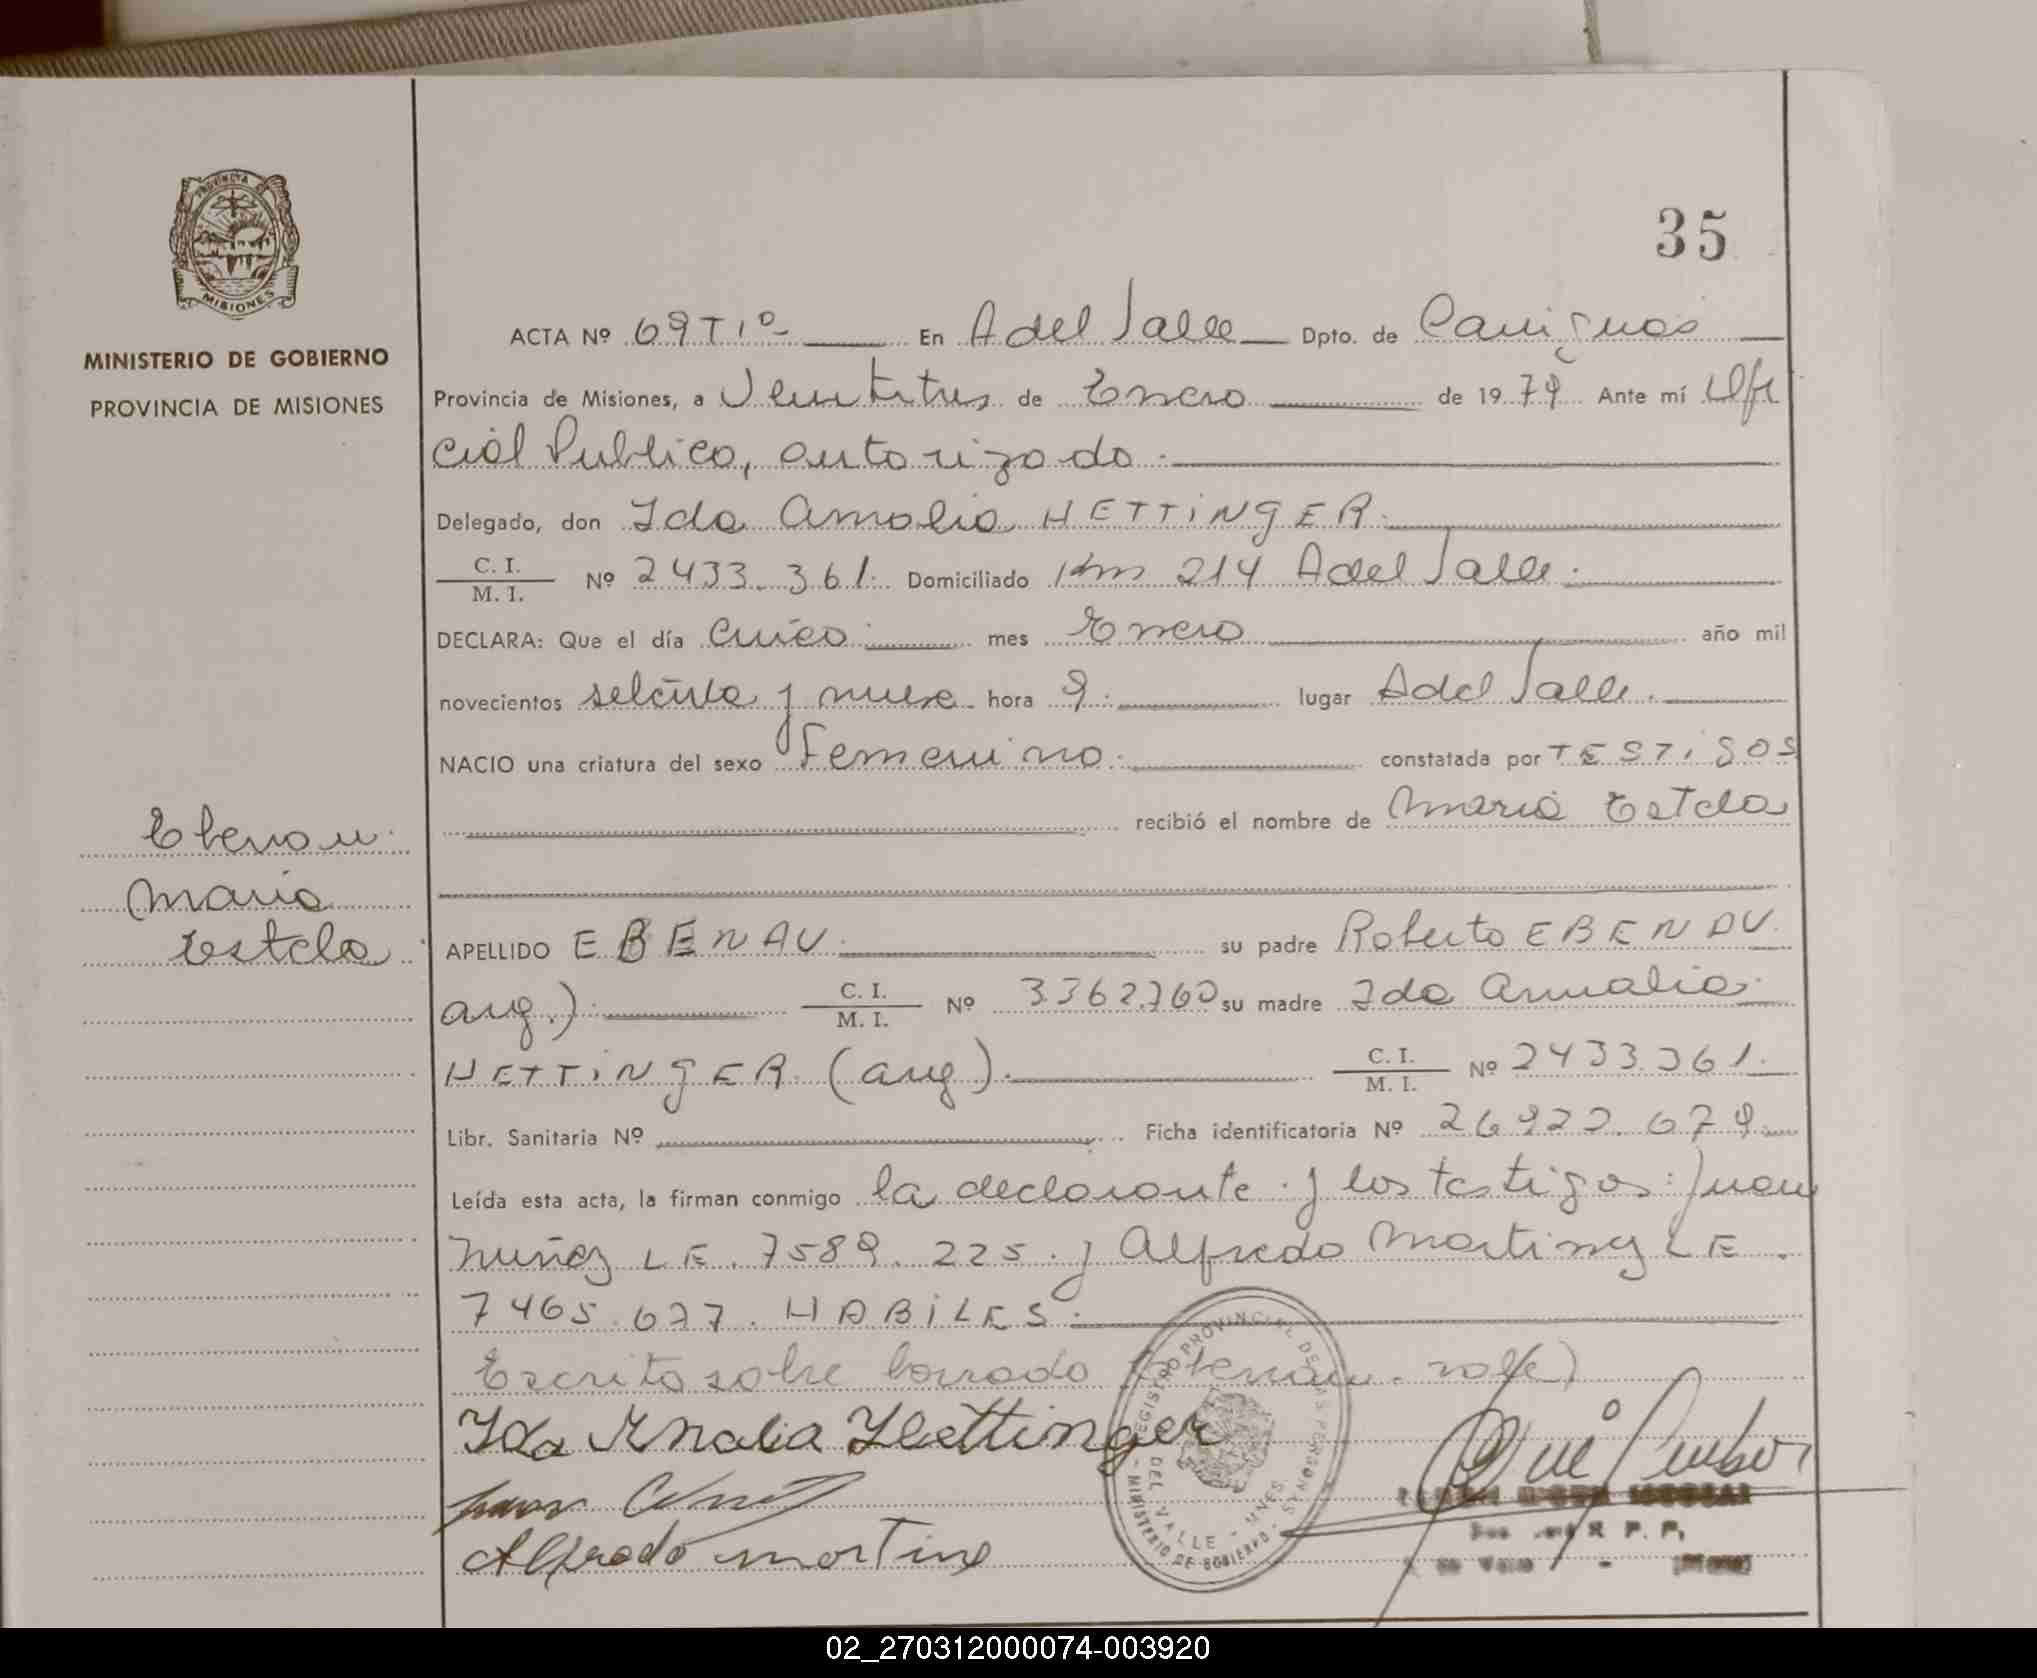 35
ACTA Nº 69 T 1º En A del Valle Dpto. de Cainguas
MINISTERIO DE GOBIERNO
PROVINCIA DE MISIONES
Provincia de Misiones, a Veintitres de Enero de 1979 Ante mí Ofi
cial Publico, autorizado.
Delegado, don Ida Amalia HETTINGER.
C. I.
M. I. Nº 2433.361. Domiciliado Km 214 A del Valle.
DECLARA: Que el día Cinco mes Enero año mil
novecientos setenta y nueve hora 9. lugar A del Valle.
NACIO una criatura del sexo Femenino. constatada por TESTIGOS
recibió el nombre de Maria Estela
Ebenau
Maria
Estela
APELLIDO EBENAU. su padre Roberto EBENAU.
arg.) C. I.
M. I. Nº 3362.760 su madre Ida Amalia
HETTINGER (arg). C. I.
M. I. Nº 2433.361.
Libr. Sanitaria Nº Ficha identificatoria Nº 26.922.679
Leída esta acta, la firman conmigo la declarante y los testigos: Juan
Nuñez LE. 7589.225. y Alfredo Martinez LE.
7465.677. HABILES.
Escrito sobre borrado (Ebenau. vale)
Ida Analia Hettinger
Alfredo Martinez
REGISTRO PROVINCIAL DE LAS PERSONAS
DEL VALLE - MNES.
MINISTERIO DE GOBIERNO
R. P. P.
02_270312000074-003920